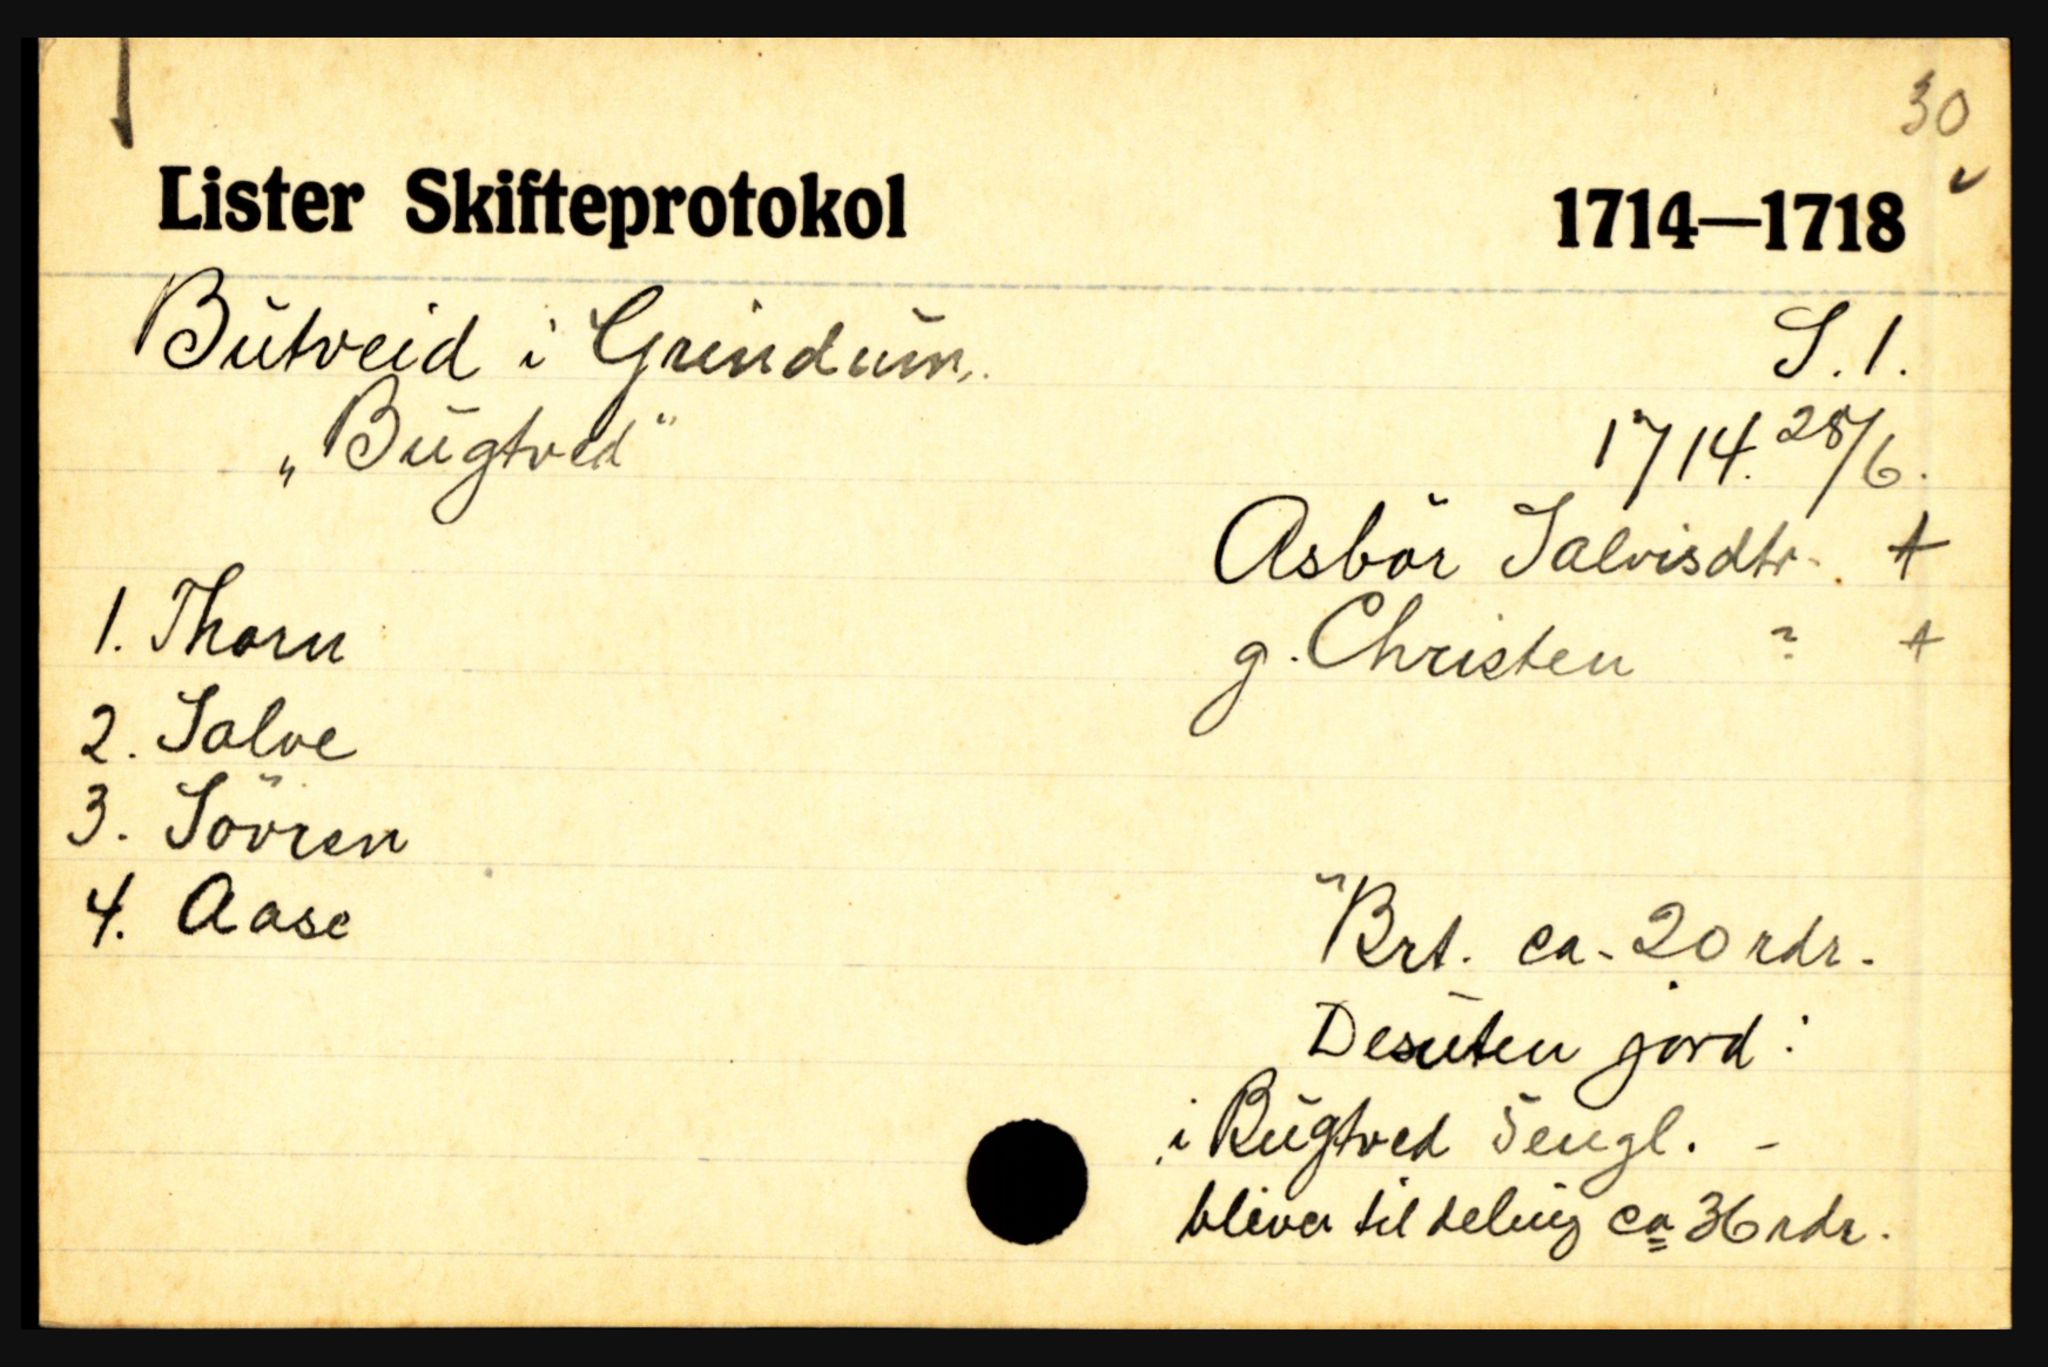 30
Lister Skifteprotokol 1714—1718
Butveid i Grindum. S. 1.
„Bugtved" 1714. 28/6.
Asbör Salvisdtr. +
1. Thorn g. Christen ? +
2. Salve
3. Sövren
4. Aase Brt. ca. 20 rdr.
Desuten jord:
i Bugtved 5 engl. -
bliver til deling ca 36 rdr.